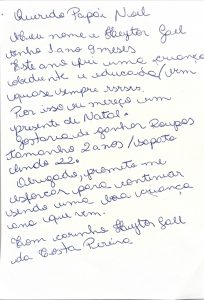 Querido Papai Noel
Meu nome e Heytor Gael
tenho 1 ano 9 meses
Este ano fui uma criança
obediente e educada/bem
quase sempre rsrsrs.
Por isso eu mereço um
presente de Natal.
Gostaria de ganhar Roupas
tamanho 2 anos/sapato
22.
Obrigado, prometo me
esforçar para continuar
sendo uma boa criança
ano que vem.
Com carinho Heytor Gael
da Costa Pereira